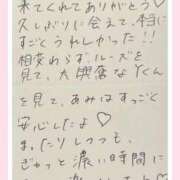 来てくれてありがとう♡
久しぶりに会えて、本当に
すごくうれしかった!!
相変わらずルーズを
見て、大興奮なYくん
を見て、あみはすっごく
安心したよ♡
まったりしつつも、
ぎゅっと濃い時間に